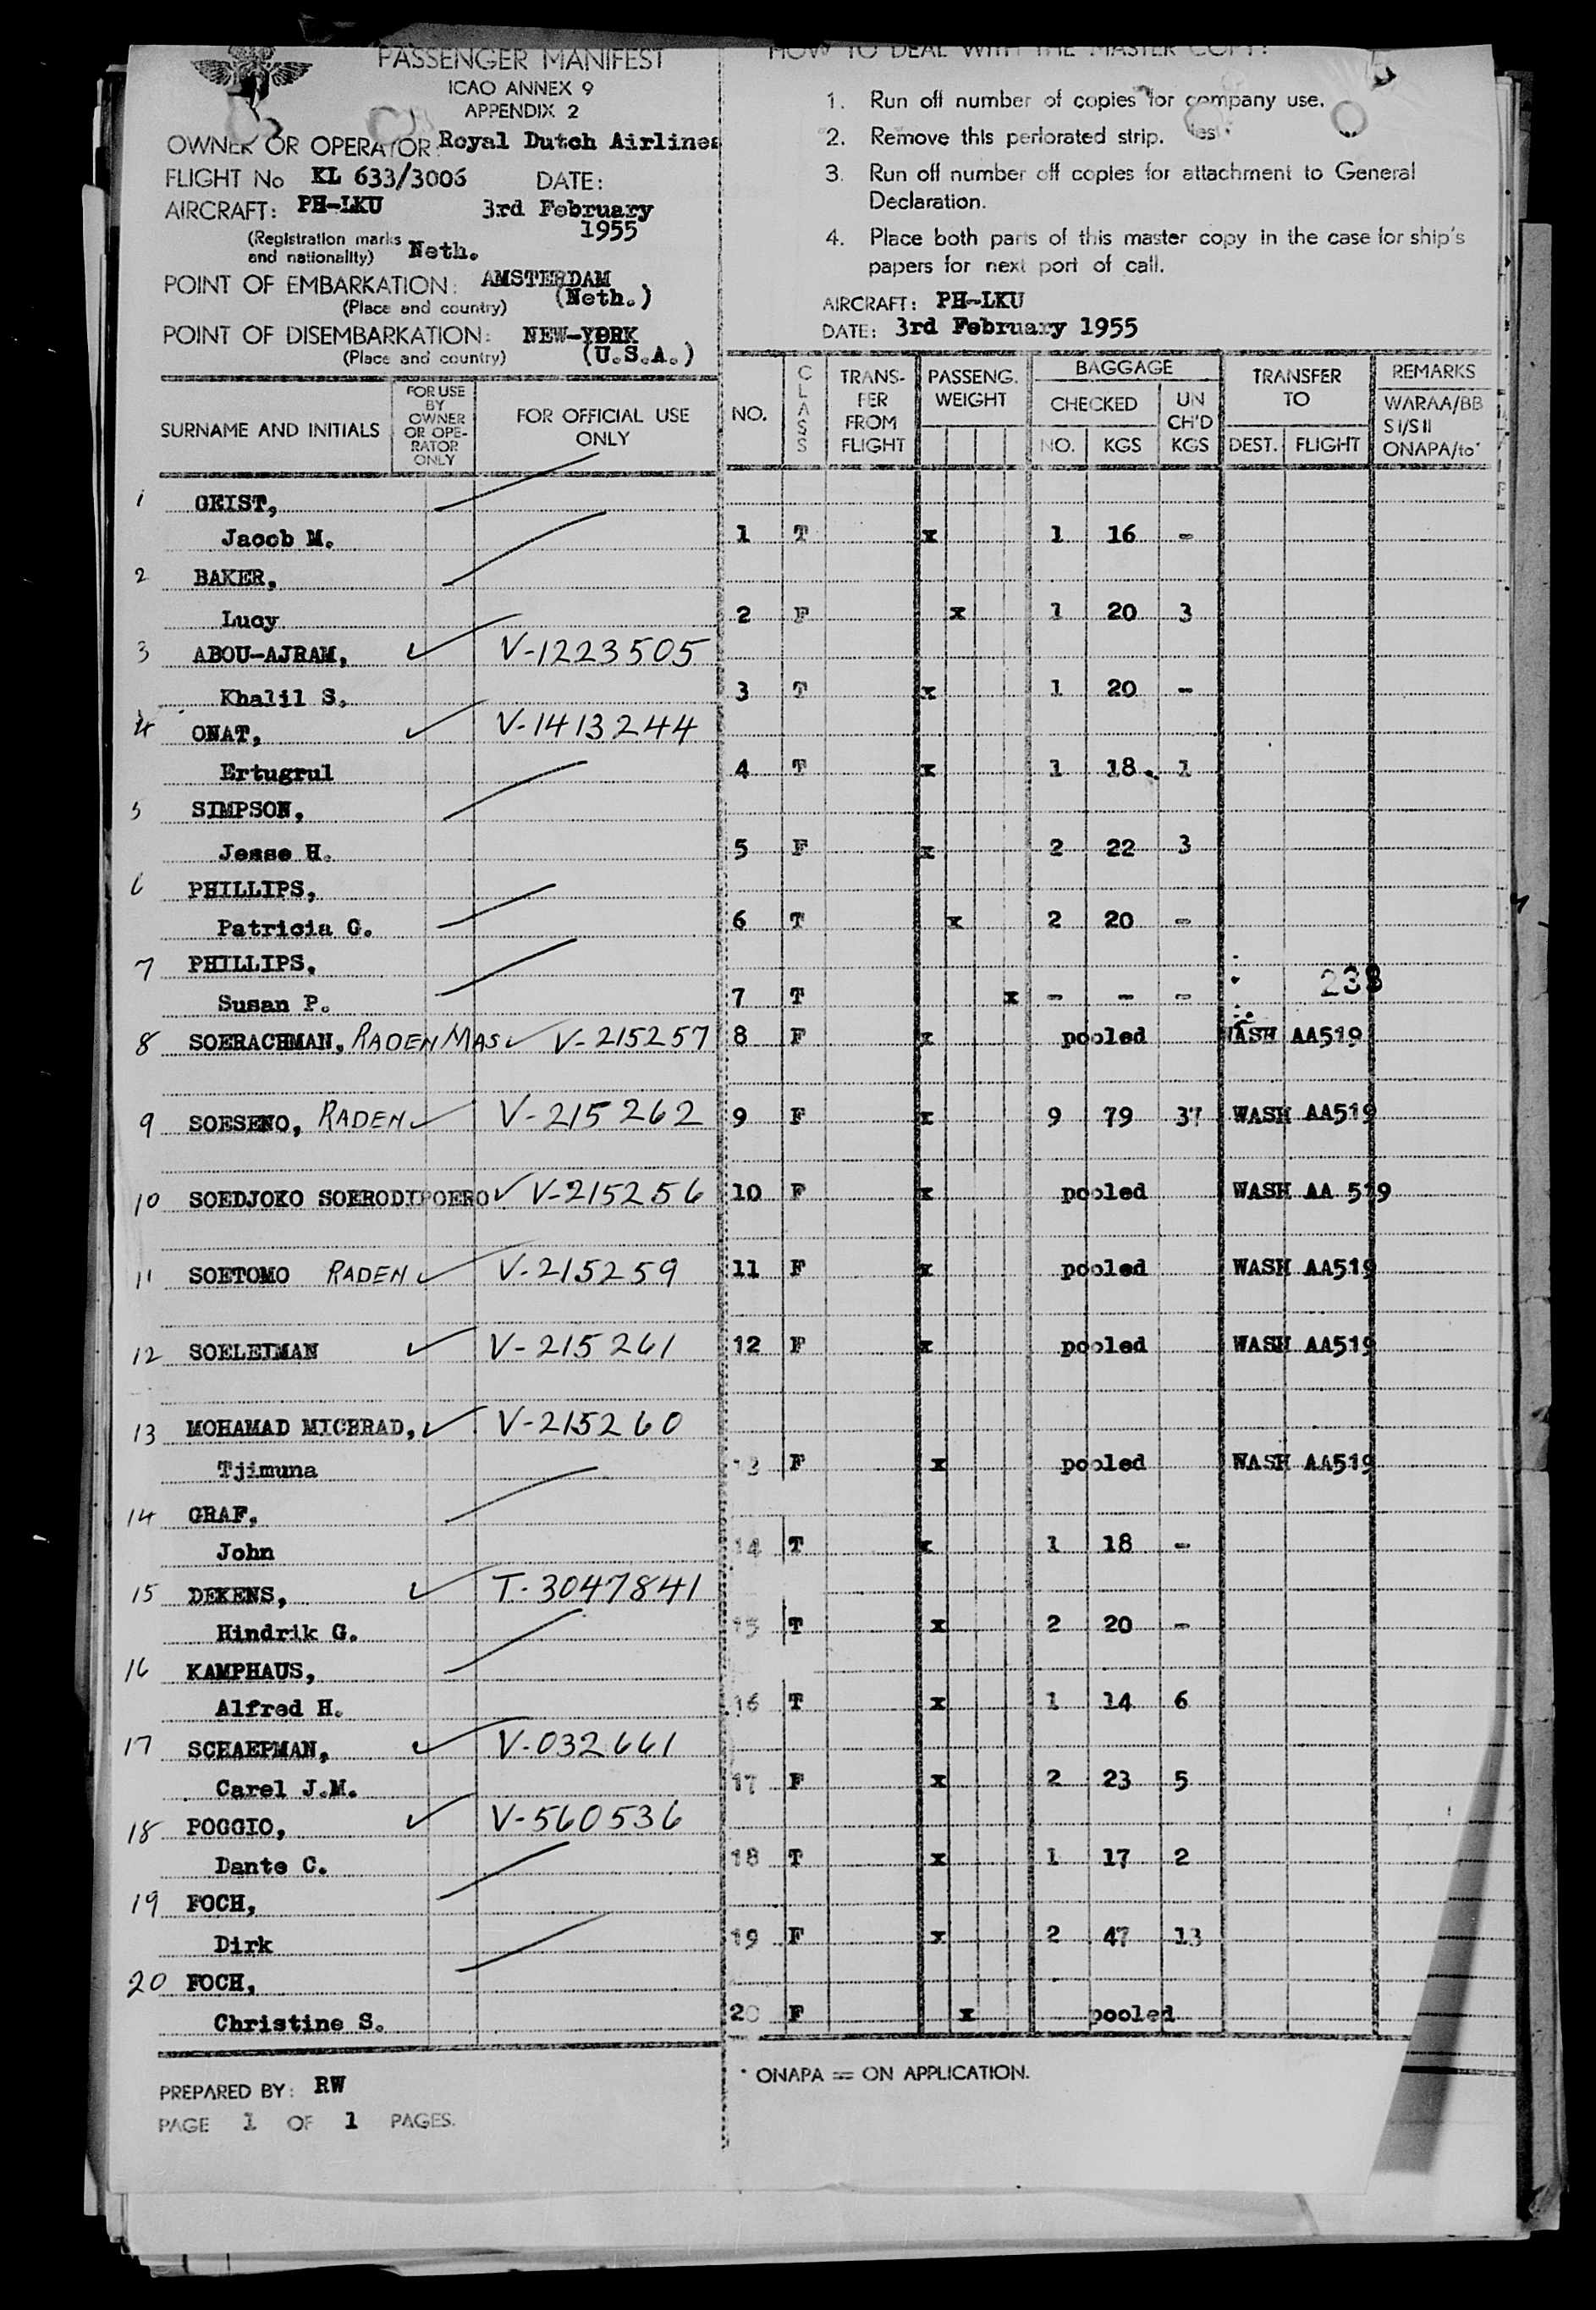 PASSENGER MANIFEST
ICAO ANNEX 9
APPENDIX 2
OWNER OR OPERATOR: Royal Dutch Airlines
FLIGHT No KL 633/3006 DATE:
AIRCRAFT: PH-LKU 3rd February
1955
(Registration marks and nationality) Neth.
POINT OF EMBARKATION: AMSTERDAM
(Place and country) (Neth.)
POINT OF DISEMBARKATION: NEW-YORK
(Place and country) (U.S.A.)
SURNAME AND INITIALS FOR USE BY OWNER OR OPE-RATOR ONLY FOR OFFICIAL USE ONLY
1 GEIST,
Jacob M.
2 BAKER,
Lucy
3 ABOU-AJRAM, ✓ V-1223505
Khalil S.
4 ONAT, ✓ V-1413244
Ertugrul
5 SIMPSON,
Jesse H.
6 PHILLIPS,
Patricia G.
7 PHILLIPS,
Susan P.
8 SOERACHMAN, RADEN MAS ✓ V-215257
9 SOESENO, RADEN ✓ V-215262
10 SOEDJOKO SOERODIPOERO ✓ V-215256
11 SOETOMO RADEN ✓ V-215259
12 SOELEIMAN ✓ V-215261
13 MOHAMAD MICHRAD, ✓ V-215260
Tjimuna
14 GRAF,
John
15 DEKENS, ✓ T-3047841
Hindrik G.
16 KAMPHAUS,
Alfred H.
17 SCHAEPMAN, ✓ V-032661
Carel J.M.
18 POGGIO, ✓ V-560536
Dante C.
19 FOCH,
Dirk
20 FOCH,
Christine S.
PREPARED BY: RW
PAGE 1 OF 1 PAGES.
HOW TO DEAL WITH THE MASTER COPY:
1. Run off number of copies for company use.
2. Remove this perforated strip.
3. Run off number off copies for attachment to General
Declaration.
4. Place both parts of this master copy in the case for ship's
papers for next port of call.
AIRCRAFT: PH-LKU
DATE: 3rd February 1955
NO. CLASS TRANS-FER FROM FLIGHT PASSENG. WEIGHT BAGGAGE CHECKED NO. KGS UN CH'D KGS TRANSFER TO DEST. FLIGHT REMARKS WARAA/BB S I/S II ONAPA/to*
1 T x 1 16 -
2 F x 1 20 3
3 T x 1 20 -
4 T x 1 18 1
5 F x 2 22 3
6 T x 2 20 -
238
7 T x - - -
8 F x pooled WASH AA519
9 F x 9 79 37 WASH AA519
10 F x pooled WASH AA 519
11 F x pooled WASH AA519
12 F x pooled WASH AA519
13 F x pooled WASH AA519
14 T x 1 18 -
15 T x 2 20 -
16 T x 1 14 6
17 F x 2 23 5
18 T x 1 17 2
19 F x 2 47 13
20 F x pooled
* ONAPA = ON APPLICATION.